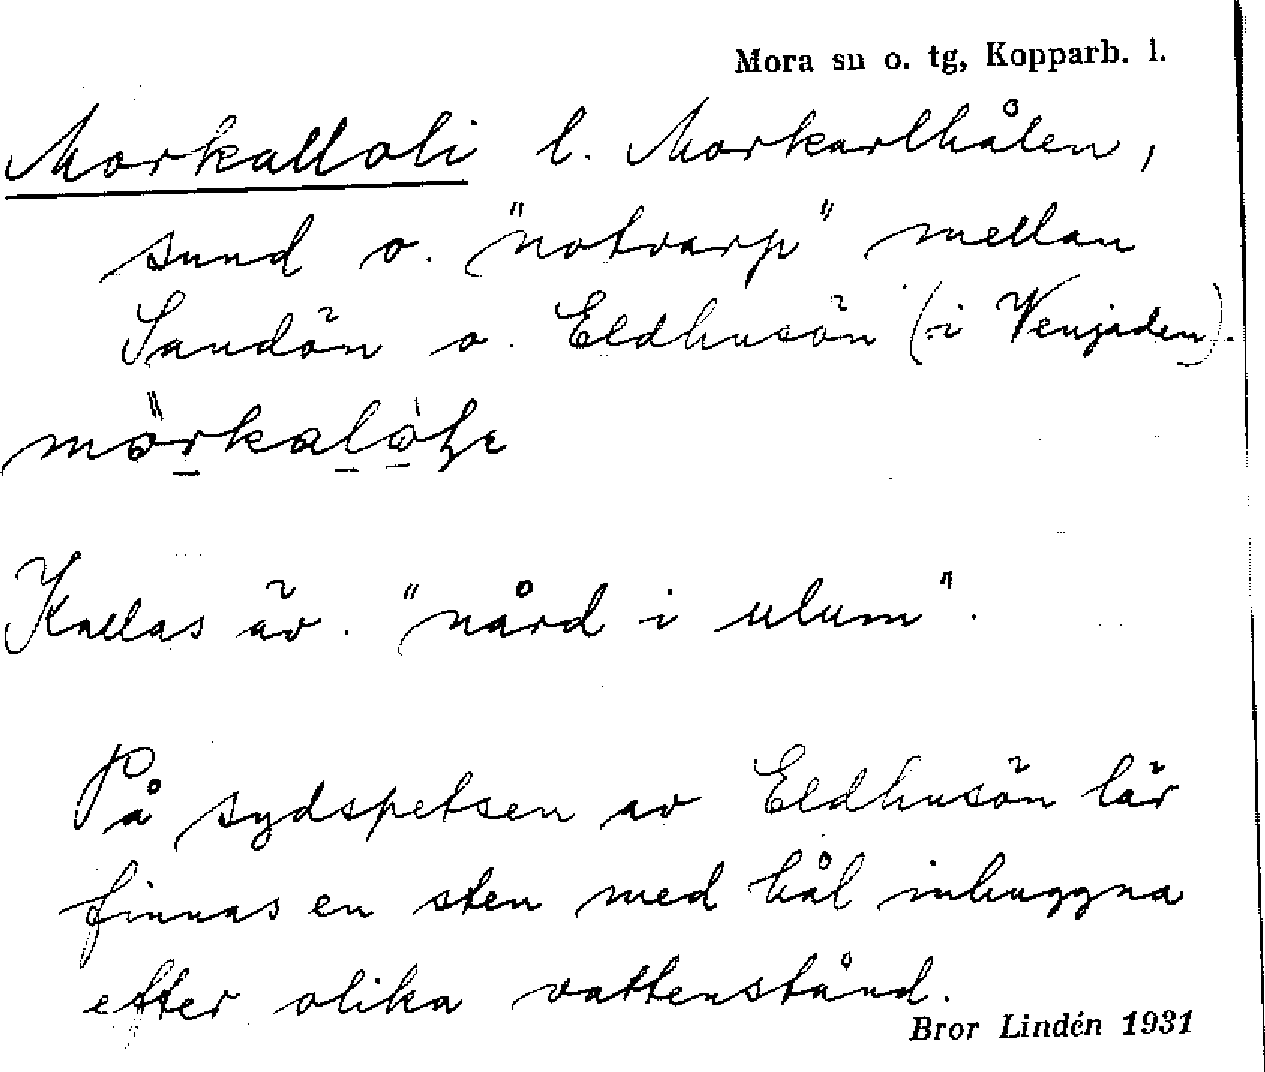 Mora sn o. tg, Kopparb. l.
Morkalloli l. Morkarlhålen,
sund o. "notvarp" mellan
Sandön o. Eldhusön (i Venjaden).
Kallas äv. "nård i ulum".
På sydspetsen av Eldhusön lär
finnas en sten med hål inhuggna
efter olika vattenstånd.
Bror Lindén 1931